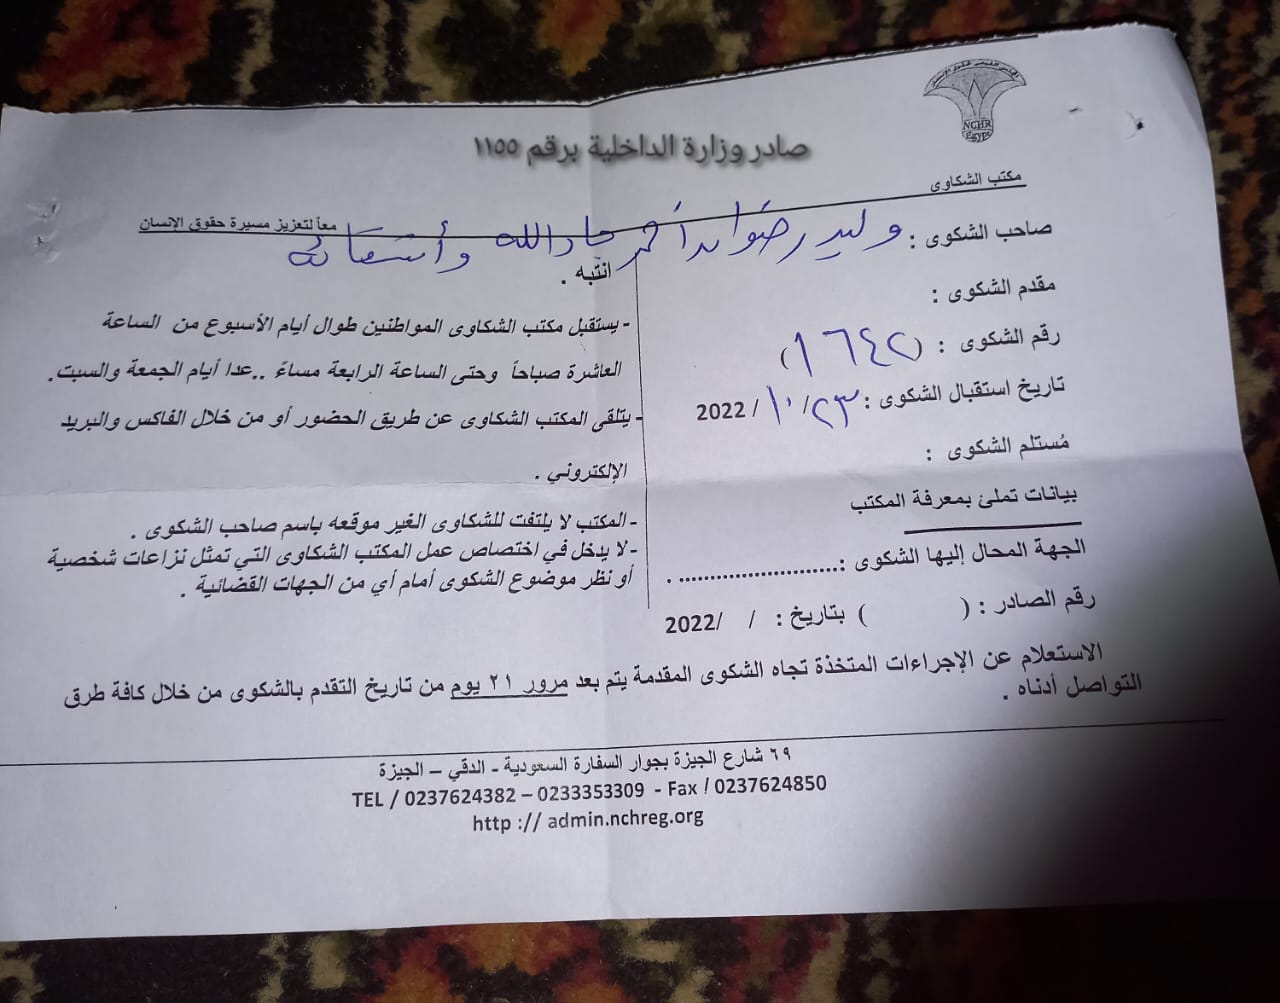 NCHR
Egypt
صادر وزارة الداخلية برقم ١١٥٥
مكتب الشكاوى
معاً لتعزيز مسيرة حقوق الإنسان
صاحب الشكوى : وليد رضوان أحمد جاد الله وأشقائه
مقدم الشكوى :
رقم الشكوى : (١٦٤٢)
تاريخ استقبال الشكوى : ٢٣/ ١٠/ 2022
مُستلم الشكوى :
بيانات تملئ بمعرفة المكتب
الجهة المحال إليها الشكوى :......................... .
رقم الصادر : ( ) بتاريخ : / /2022
انتبه .
- يستقبل مكتب الشكاوى المواطنين طوال أيام الأسبوع من الساعة
العاشرة صباحاً وحتى الساعة الرابعة مساءً ..عدا أيام الجمعة والسبت.
- يتلقى المكتب الشكاوى عن طريق الحضور أو من خلال الفاكس والبريد
الإلكتروني .
- المكتب لا يلتفت للشكاوى الغير موقعه باسم صاحب الشكوى .
- لا يدخل في اختصاص عمل المكتب الشكاوى التي تمثل نزاعات شخصية
أو نظر موضوع الشكوى أمام أي من الجهات القضائية .
الاستعلام عن الإجراءات المتخذة تجاه الشكوى المقدمة يتم بعد مرور ٢١ يوم من تاريخ التقدم بالشكوى من خلال كافة طرق
التواصل أدناه .
٦٩ شارع الجيزة بجوار السفارة السعودية - الدقي – الجيزة
TEL / 0237624382 – 0233353309 - Fax / 0237624850
http :// admin.nchreg.org